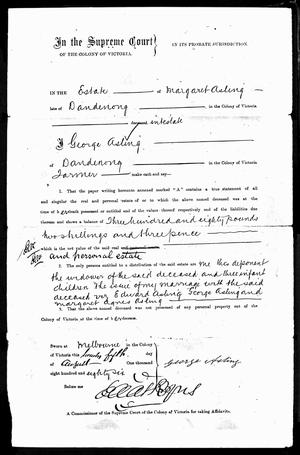 In the Supreme Court
OF THE COLONY OF VICTORIA.
IN ITS PROBATE JURISDICTION.
IN THE Estate of Margaret Asling
late of Dandenong in the Colony of Victoria
intestate
I George Asling
of Dandenong
Farmer make oath and say—
1. That the paper writing hereunto annexed marked "A" contains a true statement of all
and singular the real and personal estates of or to which the above named deceased was at the time
of her death possessed or entitled and of the values thereof respectively and of the liabilities due
thereout and shows a balance of Three hundred and eighty pounds
two shillings and three pence
which is the net value of the said real
and personal estate
2. The only persons entitled to a distribution of the said estate are me this deponent
the widower of the said deceased and three infant
children the issue of my marriage with the said
deceased viz Edward Asling George Asling and
Margaret Agnes Asling
3. That the above named deceased was not possessed of any personal property out of the
Colony of Victoria at the time of her decease.
Sworn at Melbourne in the Colony
of Victoria this twenty fifth day
of August One thousand
eight hundred and eighty six
George Asling
Before me
A Commissioner of the Supreme Court of the Colony of Victoria for taking Affidavits.